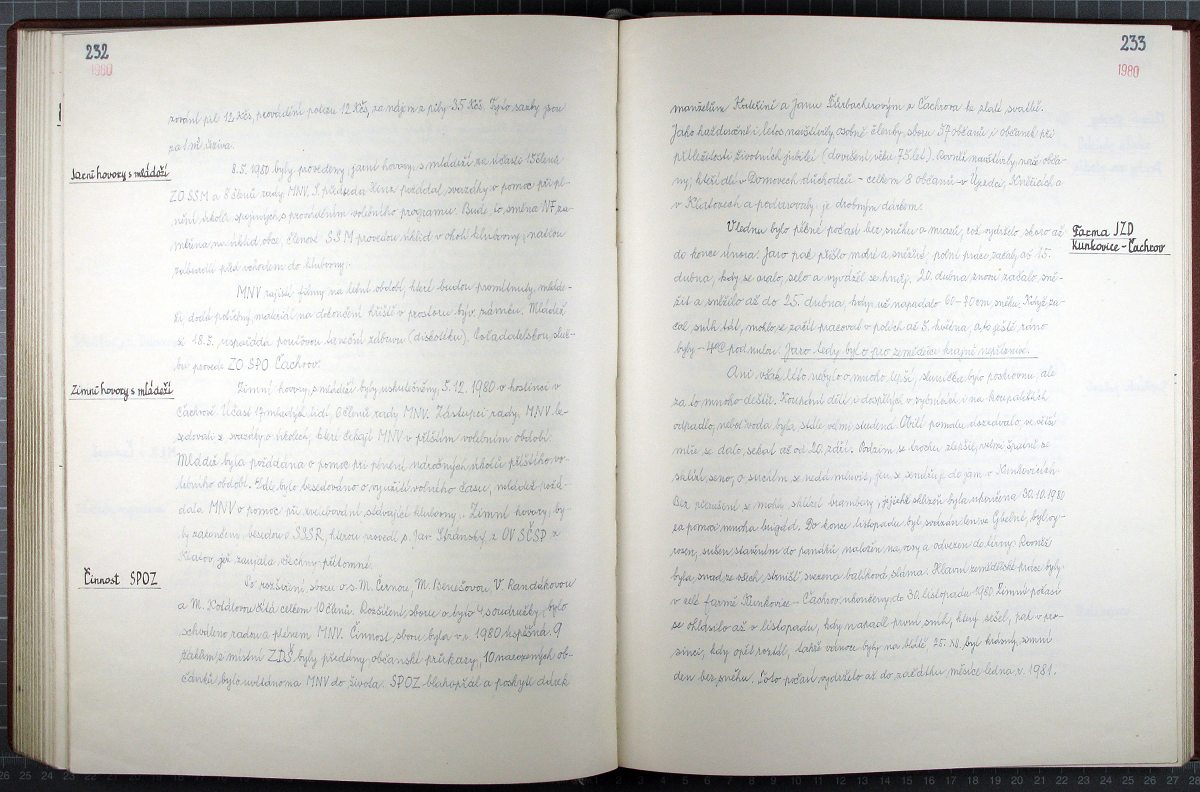 232
1980
zování pil 12 Kčs, provádění pořezu 12 Kčs, za nájem z pily 35 Kčs. Tyto sazby jsou
za 1 m³ dřeva.
Jarní hovory s mládeží
8.5. 1980 byly provedeny jarní hovory s mládeží za účasti 15 členů
ZO SSM a 8 členů rady MNV. S. předseda požádal svazáky o pomoc při pl-
nění úkolů spojených s prováděním volebního programu. Bude to směna NF za-
měřena na úklid obce, členové SSM provedou úklid v okolí klubovny, natřou
před vchodem do klubovny.
MNV zajistí filmy na letní období, které budou promítnuty mláde-
ži, dodá potřebný materiál na dokončení hřiště v prostoru býv. zámku. Mládež
si 18.5. uspořádá pouťovou taneční zábavu (diskotéku). Pořadatelskou služ-
bu provede ZO SPO Čachrov.
Zimní hovory s mládeží
Zimní hovory s mládeží byly uskutečněny 5.12. 1980 v hostinci v
Čachrově. Účast 17 mladých lidí, 6 členů rady MNV. Zástupci rady MNV be-
sedovali s svazáky o úkolech, které čekají MNV v příštím volebním období.
Mládež byla požádána o pomoc při plnění náročných úkolů příštího vo-
lebního období. Dále bylo besedováno o využití volného času, mládež požá-
dala MNV o pomoc při zvelebování stávající klubovny. Zimní hovory by-
ly zakončeny besedou o SSSR, kterou provedl s. Jar. Stránský z OV SČSP z
Klatov, jež zaujala všechny přítomné.
Činnost SPOZ
Po rozšíření sboru o s. M. Černou, M. Benešovou, V. Randákovou
a M. Kolářovou čítá celkem 10 členů. Rozšíření sboru o tyto 4 soudružky bylo
schváleno radou a plénem MNV. Činnost sboru byla v r. 1980 úspěšná. 9
žákům z místní ZDŠ byly předány občanské průkazy, 10 narozených ob-
čánků bylo uvítáno na MNV do života. SPOZ blahopřál a poskytl dárek
233
1980
manželům Kateřině a Janu z Čachrova ke zlaté svatbě.
Jako každoročně i letos navštívily osobně členky sboru 57 občanů i občanek při
příležitosti životních jubilei (dovršení věku 75 let). Rovněž navštívily naše obča-
ny, kteří dlí v Domovech důchodců - celkem 8 občanů - v Újezdci, Kněžicích a
v Klatovech a podarovaly je drobným dárkem.
Farma JZD
Kunkovice - Čachrov
V lednu bylo pěkné počasí bez sněhu a mrazů, což vydrželo skoro až
do konce února. Jaro pak přišlo mokré a sněžné, polní práce začaly až 15.
dubna, kdy se oralo, selo a vyvážel se hnůj. 20. dubna znovu začalo sně-
žit a sněžilo až do 25. dubna, kdy už napadalo 60-70 cm sněhu. Když za-
čal sníh tát, mohlo se začít pracovat v polích až 5. května, a to ještě ráno
byly -4°C pod nulou. Jaro tedy bylo pro zemědělce krajně nepříznivé.
Ani však léto nebylo o mnoho lepší, sluníčka bylo poskrovnu, ale
za to mnoho dešťů. Koupání dětí i dospělých v rybnících i na koupalištích
odpadlo, neboť voda byla stále velmi studená. Obilí pomalu dozrávalo, ve větší
míře se dalo sekat až od 20. září. Podzim se trochu zlepšil, velmi špatně se
sklízelo seno, o sušilo se nedá mluvit, jen se senážuje do jam v Kunkovicích.
Bez přerušení se mohly sklízet brambory, jejichž sklizeň byla ukončena 30.10.1980
za pomoci mnoha brigád. Do konce listopadu byl svázán len ve Gybelně, byl vy-
sušen, stavěním do panáků naložen na vozy a odvezen do tírny. Rovněž
byla snad ze všech strnišť svezena balíková sláma. Hlavní zemědělské práce byly
v celé farmě Kunkovice - Čachrov ukončeny do 30. listopadu 1980. Zimní počasí
se ohlásilo až v listopadu, kdy napadl první sníh, který sešel, pak v pro-
sinci, kdy opět roztál, takže vánoce byly na blátě. 25. XII. byl krásný zimní
den bez sněhu. Toto počasí vydrželo až do začátku měsíce ledna r. 1981.